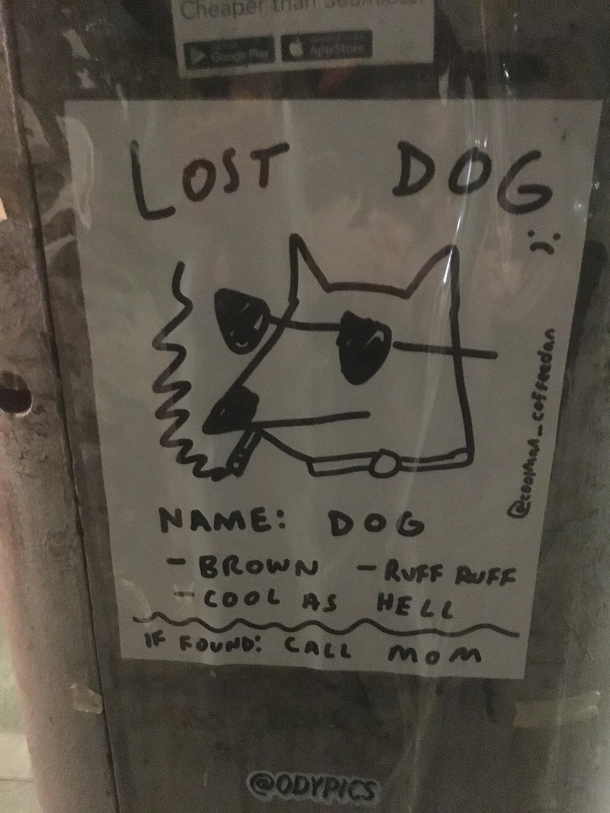 Cheaper than Seamless
Google Play App Store
LOST DOG
;:
@coolman_coffeedan
NAME: DOG
- BROWN - RUFF RUFF
- COOL AS HELL
IF FOUND: CALL MOM
@ODYPICS